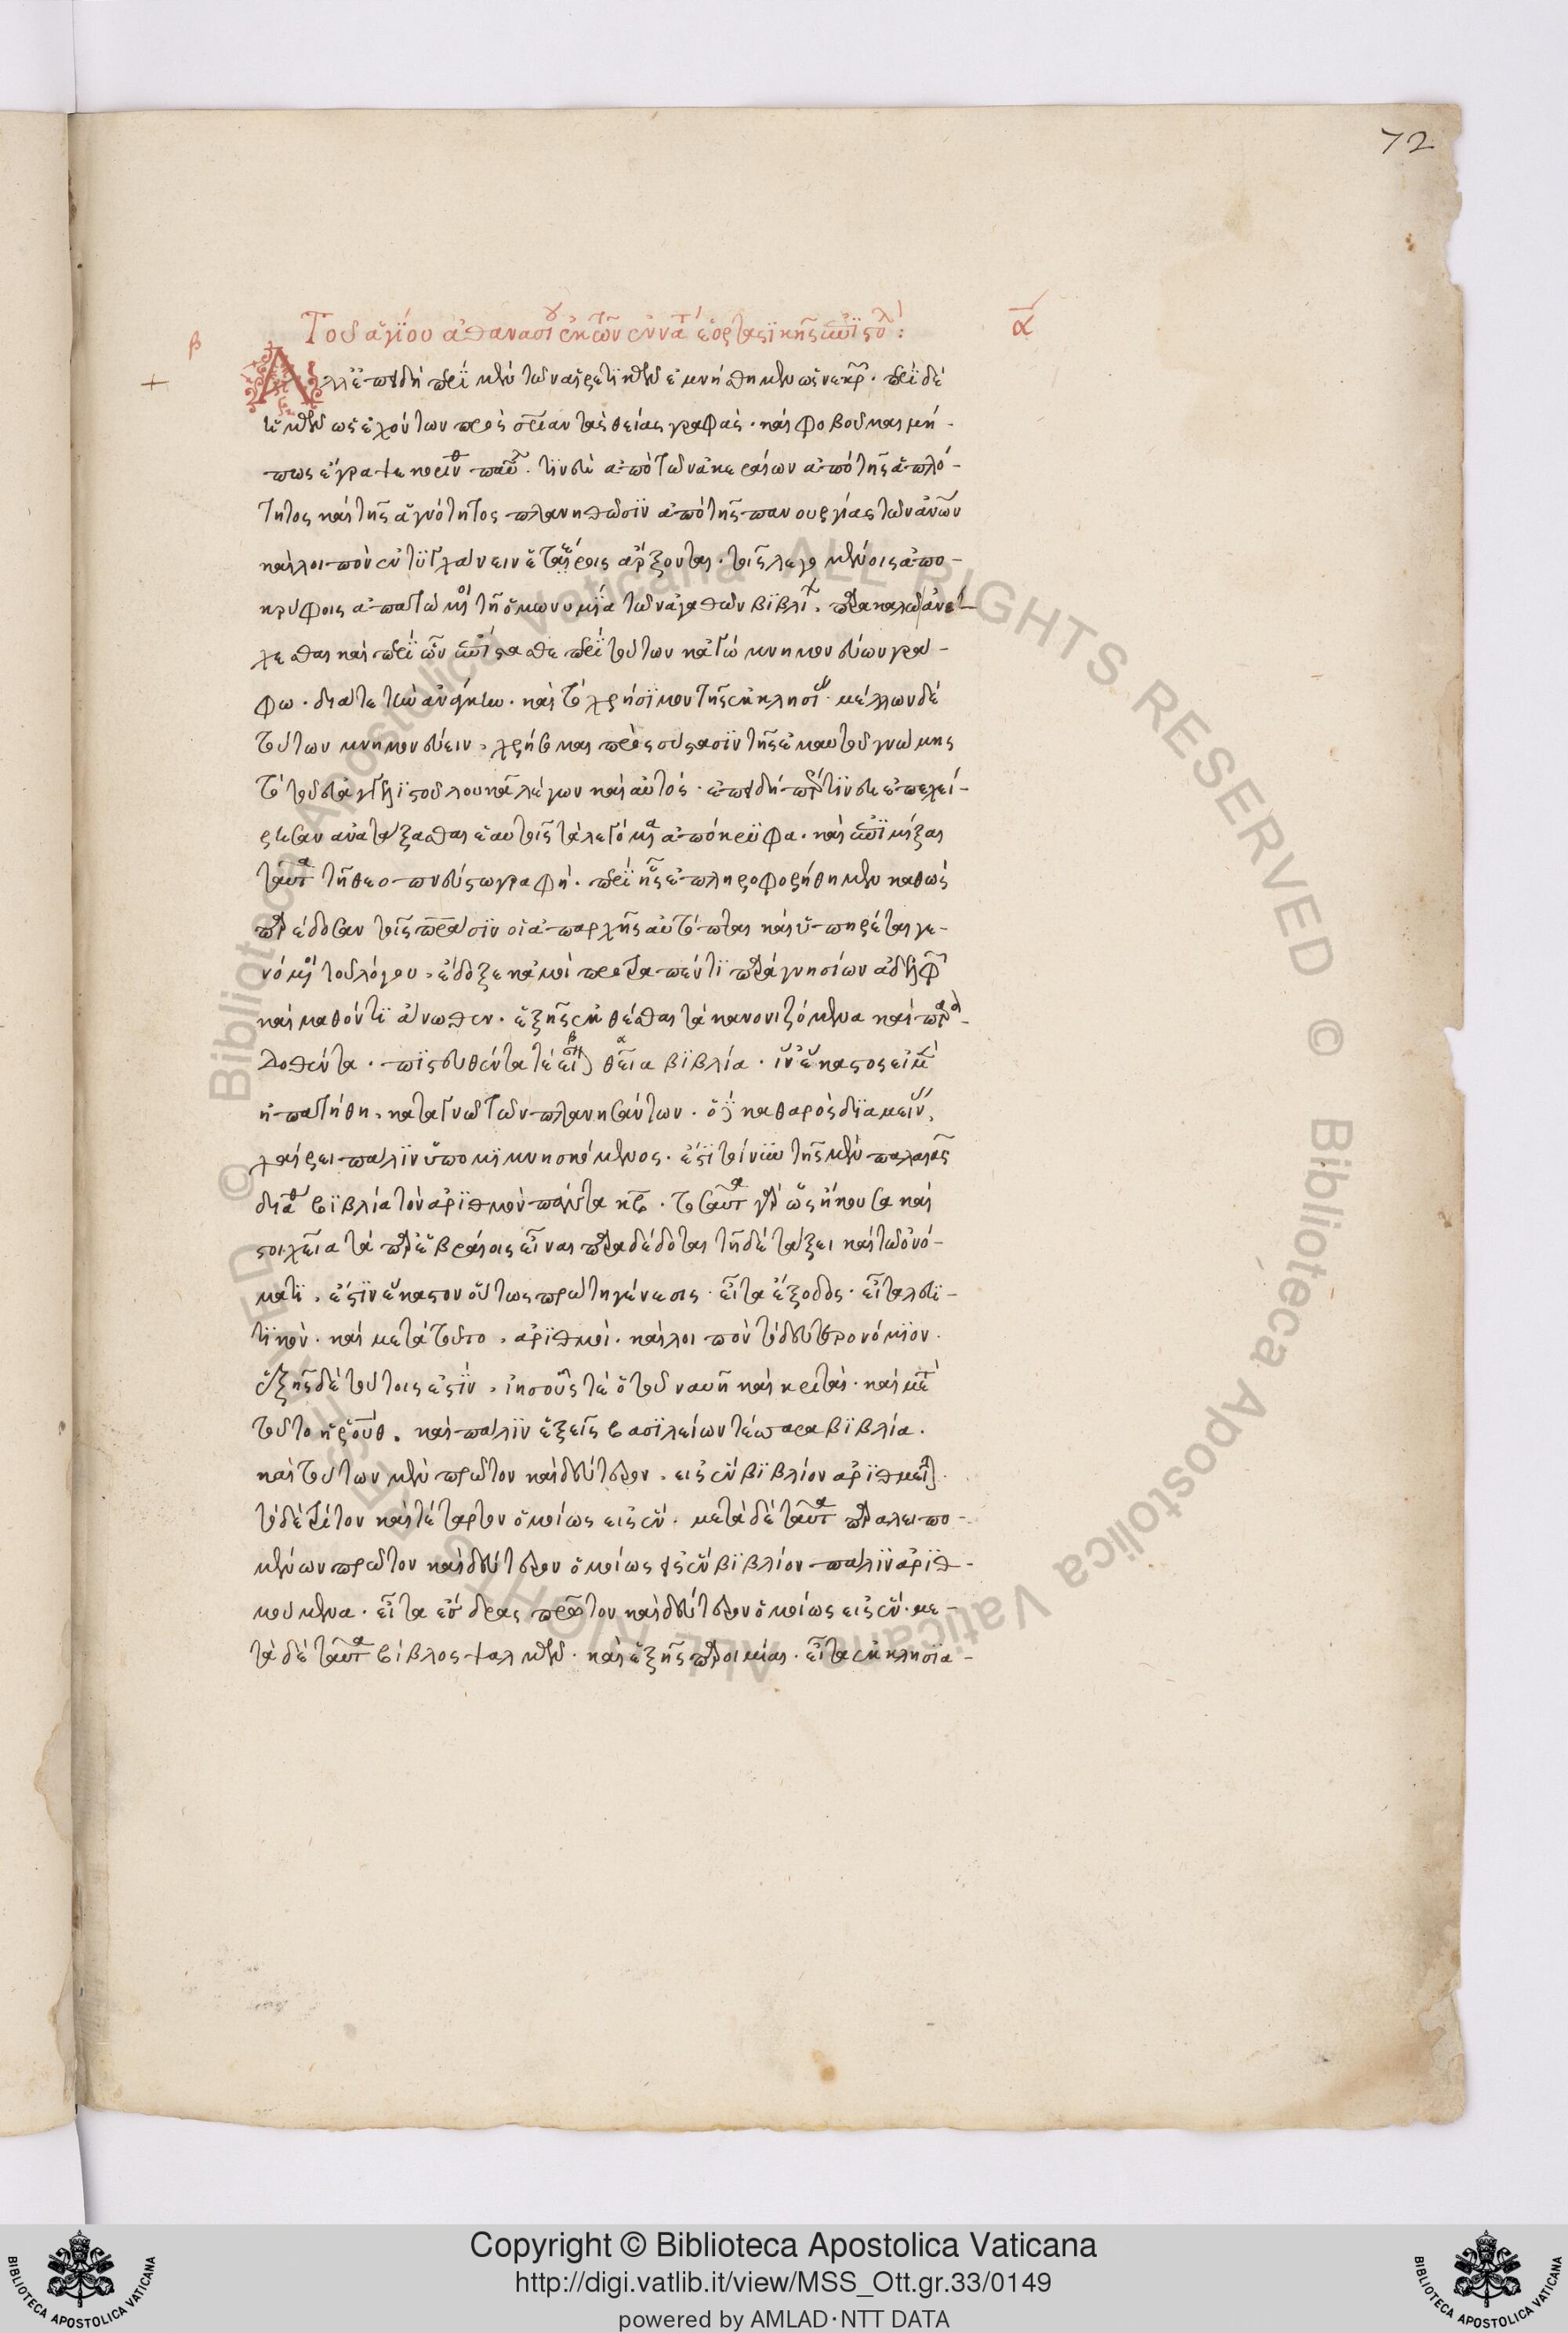 72
Τοῦ ἁγίου ἀθανασί ἐκ τῶν ἐννάτ ἑορταστικῆς ἐπιστολ:
α
β
Ἀλλ ἐπειδὴ περὶ μὲν τῶν αἱρετικῶν ἐμνήσθημεν ὡς νεκρ. περὶ δὲ
ἡμῶν ὡς ἐχόντων πρὸς σρίαν τὰς θείας γραφὰς. καὶ φοβοῦμαι μή-
πως ἔγραψε κοριν παῦ. τινὲς ἀπὸ τῶν ἀκεραίων ἀπὸ τῆς ἁπλό-
τητος καὶ τῆς ἁγνότητος πλανηθῶσιν ἀπὸ τῆς πανουργίας τῶν ἀνων
καὶ λοιπὸν ἐντυγχάνειν ἑτέροις ἄρξονται. τοῖς λεγομένοις ἀπο-
κρύφοις ἀπατώμενοι τῇ ὁμωνυμία τῶν ἀγαθῶν βιβλί. παρακαλῶ ἀνε-
χεσθαι καὶ περὶ ὧν ἐπίστασθε περὶ τούτων κἀγὼ μνημονεύων γρά-
φω. διά τε τὴν ἀνάγκην. καὶ τὸ χρήσιμον τῆς ἐκκλησί. μέλλων δὲ
τούτων μνημονεύειν, χρήσομαι πρὸς σύστασιν τῆς ἐμαυτοῦ γνώμης
τὸ τοῦ εὐαγγελιστοῦ λουκᾶ λέγων καὶ αὐτός. ἐπειδήπερ τινὲς ἐπεχεί-
ρησαν ἀνατάξασθαι ἑαυτοῖς τὰ λεγόμενα ἀπόκρυφα. καὶ ἐπιμίξαι
ταῦτα τῇ θεοπνεύστω γραφῇ. περὶ ἧς ἐπληροφορήθημεν καθὼς
παρέδοσαν τοῖς πράσιν οἱ ἀπαρχῆς αὐτόπται καὶ ὑπηρέται γε-
νόμενοι τοῦ λόγου, ἔδοξε κἀμοὶ προτραπέντι παρὰ γνησίων ἀδελφῶν
καὶ μαθόντι ἄνωθεν. ἑξῆς ἐκθέσθαι τὰ κανονιζόμενα καὶ παρα-
δοθέντα. πιστευθέντα τὲ εἶναι θεῖα βιβλία. ἵν ἕκαστος εἰ μὲν
ἠπατήθη, καταγνῶ τῶν πλανησάντων. ὁ δὲ καθαρὸς διαμείν,
χαίρει πάλιν ὑπομιμνησκόμενος. ἔστι τοίνυν τῆς μὲν παλαιᾶς
διαθ βιβλία τὸν ἀριθμὸν πάντα κβ. τοσαῦτα γὰρ ὡς ἤκουσα καὶ
στοιχεῖα τὰ παρ ἑβραίοις εἶναι παραδέδοται τῇ δὲ τάξει καὶ τῶ ὀνό-
ματι, ἔστιν ἕκαστον οὕτως πρώτη γένεσις. εἶτα ἔξοδος. εἶτα λευϊ-
τικὸν. καὶ μετὰ τοῦτο, ἀριθμοὶ. καὶ λοιπὸν τὸ δευτερονόμιον.
ἑξῆς δὲ τούτοις ἐστὶν, ἰησοῦς τὲ ὁ τοῦ ναυῆ καὶ κριταὶ. καὶ μετὰ
τοῦτο ἡ ῥούθ. καὶ πάλιν ἑξεῖς βασιλείων τέσσαρα βιβλία.
καὶ τούτων μὲν πρῶτον καὶ δεύτερον, εἰς ἓν βιβλίον ἀριθμεῖται.
τὸ δὲ τρίτον καὶ τέταρτον ὁμοίως εἰς ἓν. μετὰ δὲ ταῦτα παραλειπο-
μένων πρῶτον καὶ δεύτερον ὁμοίως εἰς ἓν βιβλίον πάλιν ἀριθ-
μούμενα. εἶτα ἔσδρας πρῶτον καὶ δεύτερον ὁμοίως εἰς ἓν. με-
τὰ δὲ ταῦτα βίβλος ψαλμῶν. καὶ ἑξῆς παροιμίαι. εἶτα ἐκκλησια-
Copyright © Biblioteca Apostolica Vaticana
http://digi.vatlib.it/view/MSS_Ott.gr.33/0149
powered by AMLAD·NTT DATA
BIBLIOTECA APOSTOLICA VATICANA
BIBLIOTECA APOSTOLICA VATICANA
© Biblioteca Apostolica Vaticana ALL RIGHTS RESERVED © Biblioteca Apostolica Vaticana ALL RIGHTS RESERVED